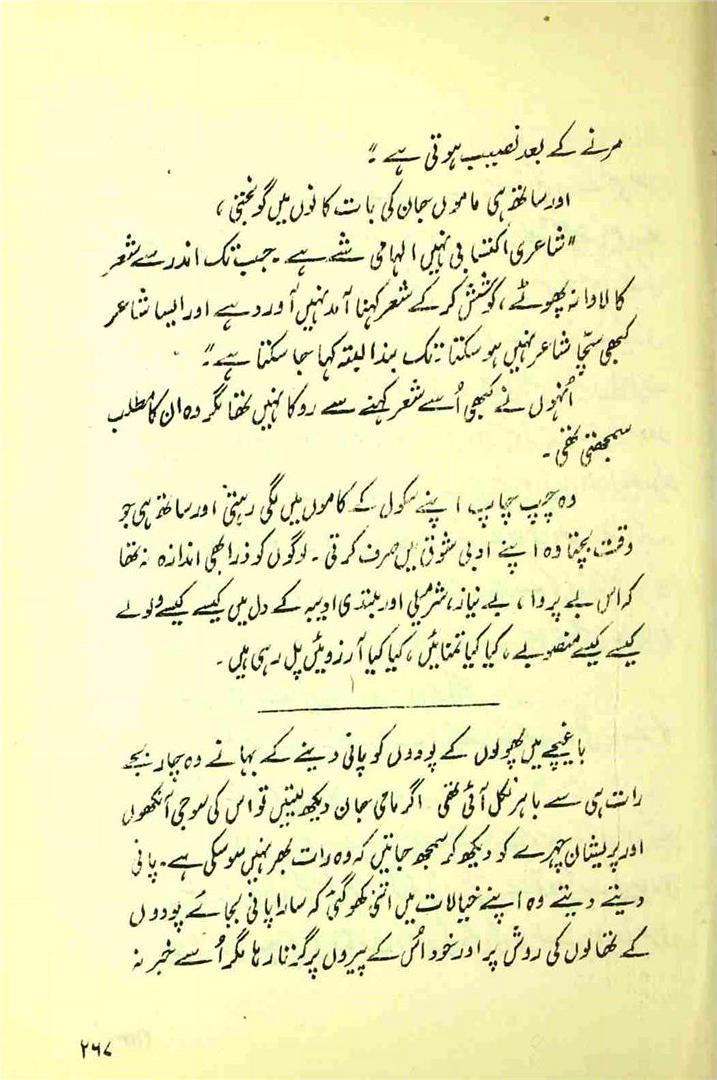 مرنے کے بعد نصیب ہوتی ہے۔"
اور ساتھ ہی ماموں جان کی بات کانوں میں گونجتی،
"شاعری اکتسابی نہیں الہامی شے ہے۔ جب تک اندر سے شعر
کا لاوا نہ پھوٹے، کوشش کر کے شعر کہنا آمد نہیں آورد ہے اور ایسا شاعر
کبھی سچّا شاعر نہیں ہو سکتا۔ تک بند البتہ کہا جا سکتا ہے۔"
اُنہوں نے کبھی اُسے شعر کہنے سے روکا نہیں تھا مگر وہ ان کا مطلب
سمجھتی تھی۔
وہ چپ چاپ اپنے سکول کے کاموں میں لگی رہتی اور ساتھ ہی جو
وقت بچتا وہ اپنے ادبی شوق میں صرف کرتی۔ لوگوں کو ذرا بھی اندازہ نہ تھا
کہ اس بے پروا، بے نیاز، شرمیلی اور مبتدی ادیبہ کے دل میں کیسے کیسے ولولے
کیسے کیسے منصوبے، کیا کیا تمنائیں، کیا کیا آرزوئیں پل رہی ہیں۔
باغیچے میں پھولوں کے پودوں کو پانی دینے کے بہانے وہ چار بجے
رات ہی سے باہر نکل آئی تھی۔ اگر مامی جان دیکھ لیتیں تو اس کی سوجی آنکھوں
اور پریشان چہرے کو دیکھ کر سمجھ جاتیں کہ وہ رات بھر نہیں سو سکی ہے۔ پانی
دیتے دیتے وہ اپنے خیالات میں اتنی کھو گئی کہ سارا پانی بجائے پودوں
کے تھالوں کی روش پر اور خود اُس کے پیروں پر گرتا رہا مگر اُسے خبر نہ
۲۶۷